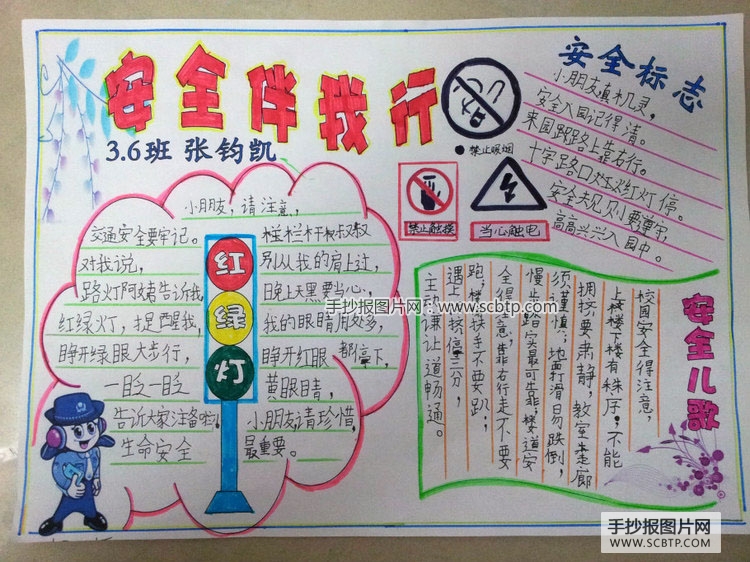 安全伴我行
3.6班 张钧凯
小朋友,请注意,
交通安全要牢记。
对我说,
路灯阿姨告诉我
红绿灯,提醒我,
睁开绿眼大步行,
一眨一眨
告诉大家注备啦!
生命安全
栏杆叔叔
别从我的肩上过,
晚上天黑要当心,
我的眼睛用处多,
睁开红眼 都停下,
黄眼睛,
小朋友请珍惜,
最重要。
红
绿
灯
禁止吸烟
禁止触摸
当心触电
安全标志
小朋友真机灵,
安全入园记得清。
来园路上靠右行。
十字路口红灯停。
安全规则要遵守,
高高兴兴入园中。
安全儿歌
校园安全得注意,
上楼下楼有秩序;不能
拥挤要肃静,教室走廊
须谨慎;地面打滑易跌倒,
慢步踏实最可靠;楼道安
全得注意,靠右行走不要
跑;楼梯扶手不要趴;
遇上拥挤停三分,
主动谦让道畅通。
手抄报图片网:www.scbtp.com
手抄报图片网
WWW.SCBTP.COM